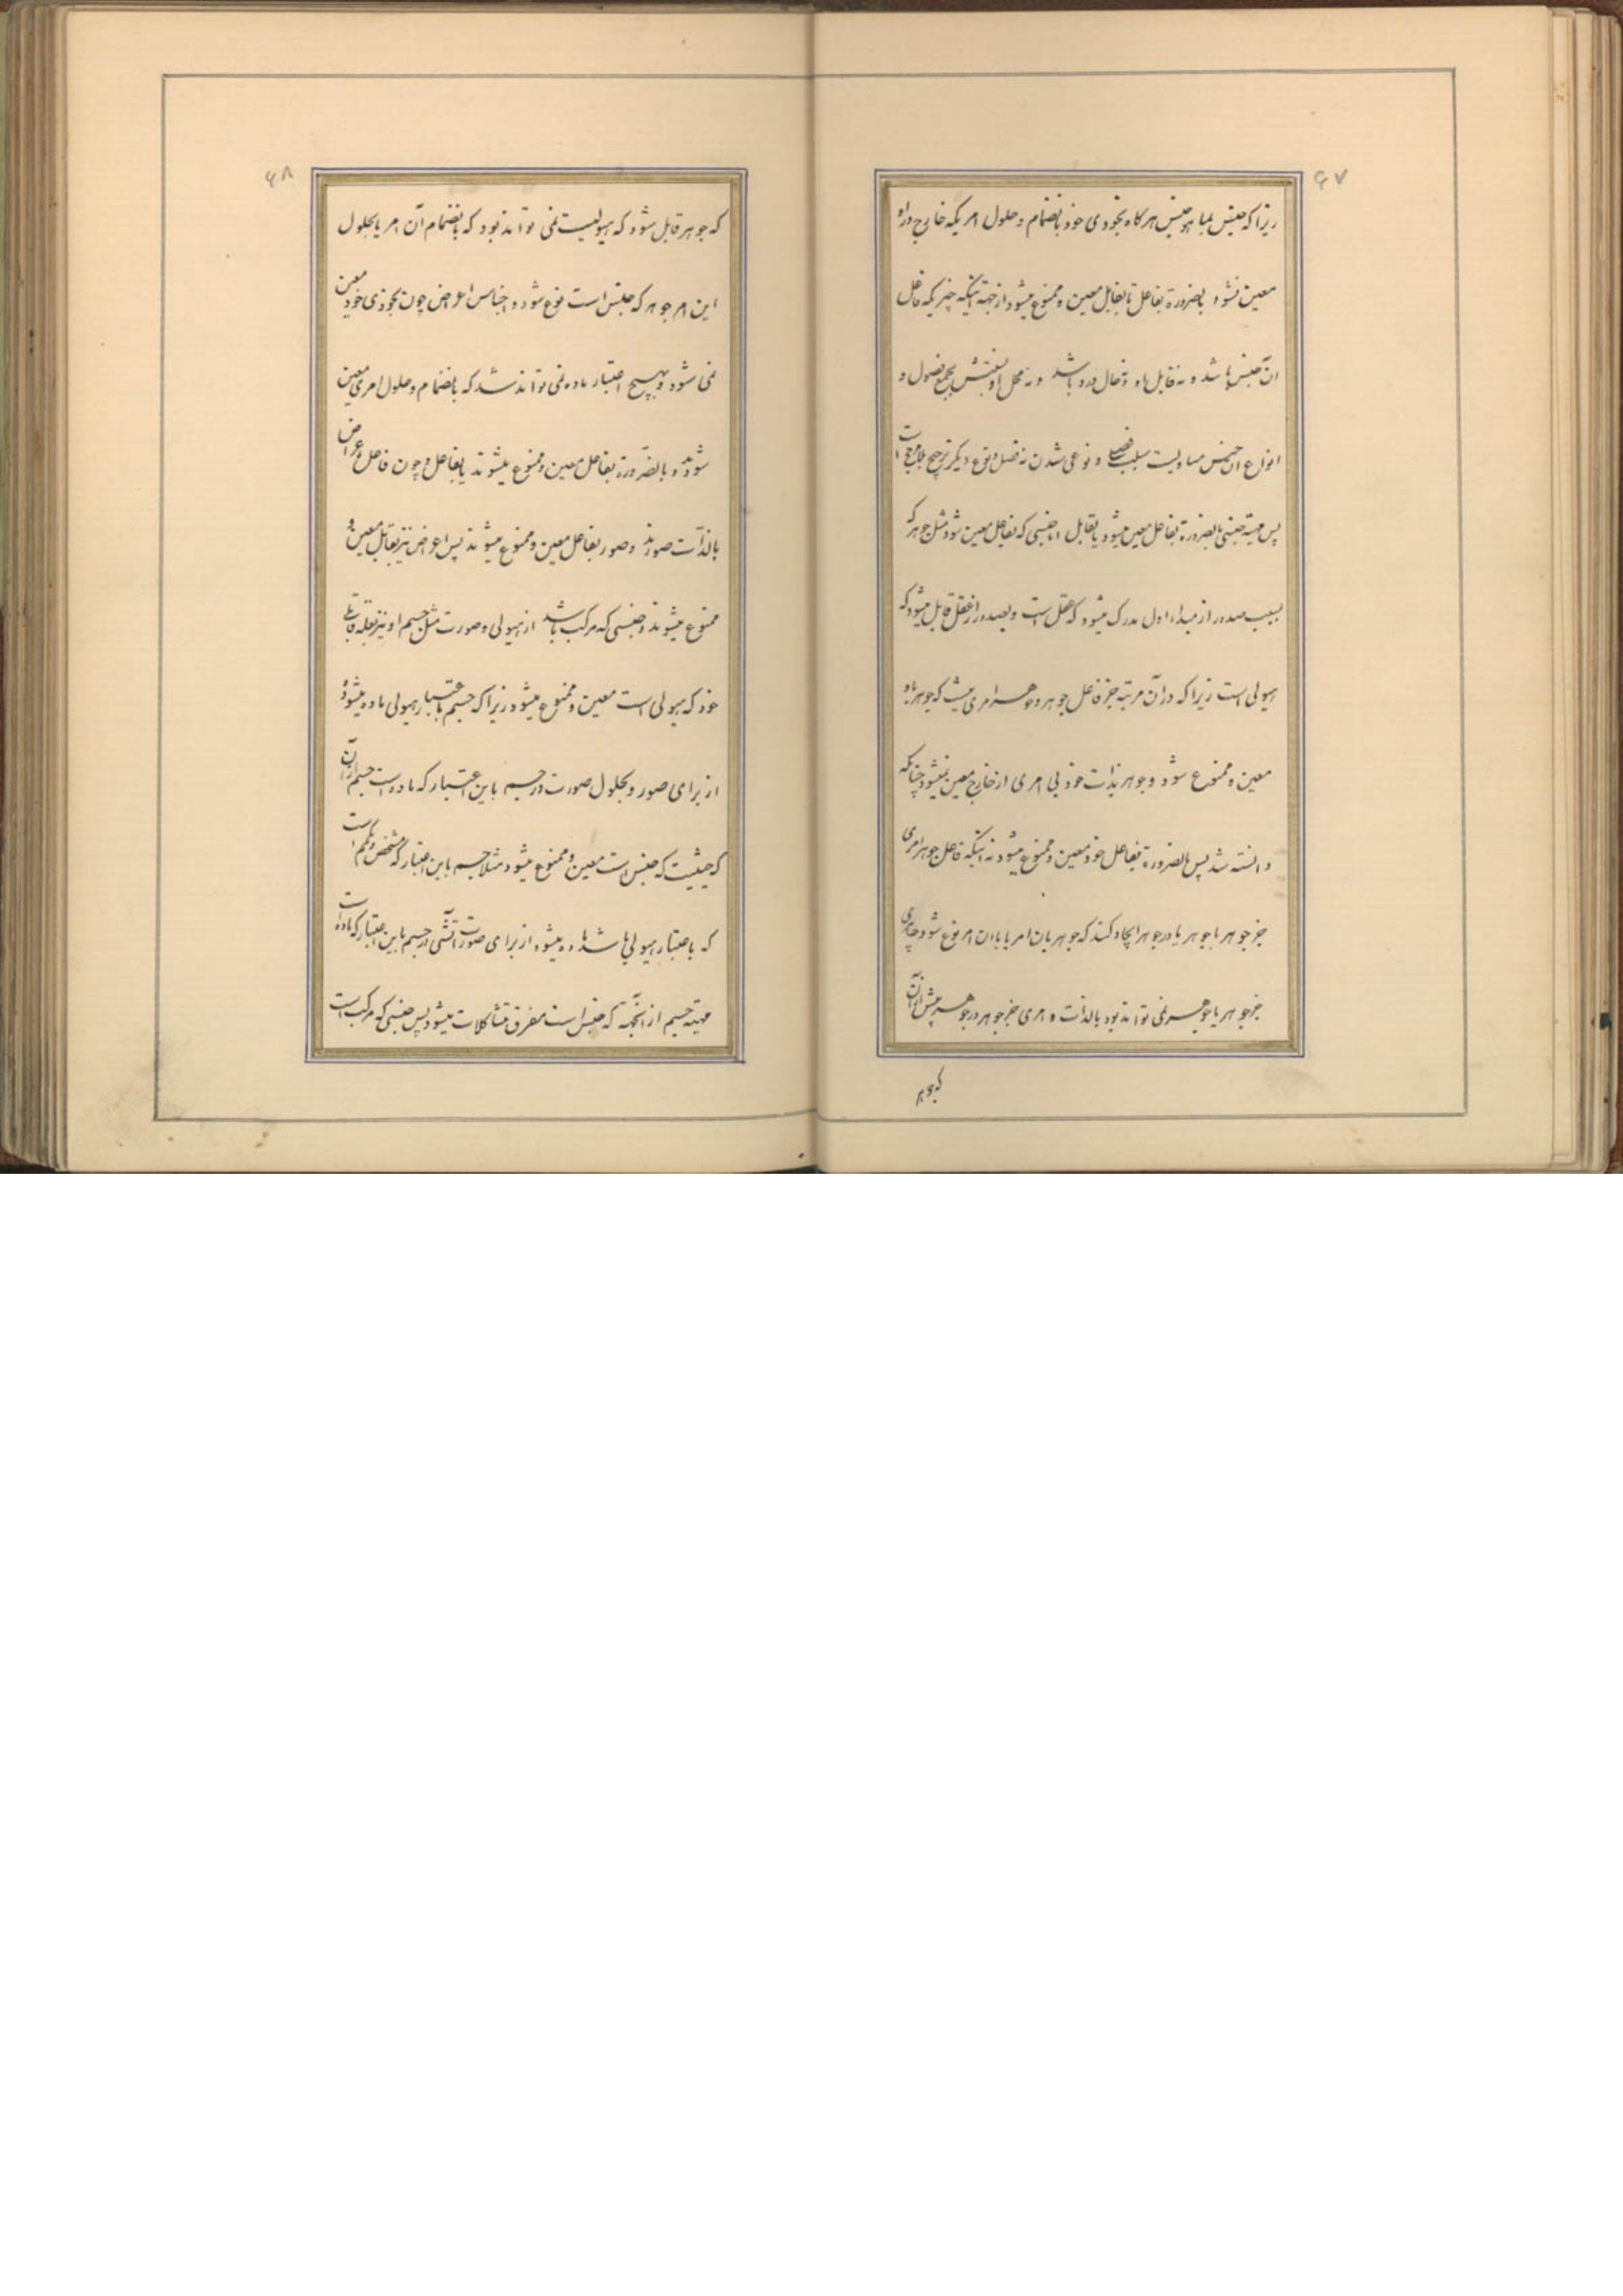 ۶۷
زیرا که جنس بما هو جنس هرگاه بخودی خود بانضمام و حلول امریکه خارج از او
معین نشود بالضرورة بفاعل تا بقابل معین و ممنوع میشود از جهة آنکه چیزیکه فاعل
ان جنس باشد و نه قابل او و نه حال درو باشد و نه محل او نسبتش بجمیع فصول و
انواع ان جنس مساویست بسبب فصلی و نوعی شدن نه فصل و نوع دیگر ترجیح بلا مرجح است
پس مهیة جنسی بالضرورة بفاعل معین میشود یا بقابل اما جنسی که بفاعل معین شود مثل جوهر که
بسبب صدور از مبداء اول مدرک میشود که عقل است و بصدور از عقل قابل میشود که
هیولی است زیرا که در آن مرتبه جز فاعل جوهر و جوهر امری نیست که جوهر باو
معین و ممنوع شود و جوهر بذات خود بی امری از خارج معین نمیشود چنانکه
دانسته شد پس بالضرورة بفاعل خود معین و ممنوع میشود نه اینکه فاعل جوهر امری
جز جوهر با جوهر یا در جوهر ایجاد کند که جوهر بان امر یا با ان امر نوع شود چه امری
جز جوهر با جوهر نمی تواند بود بالذات و امری جز جوهر در جوهر پیش از آن
که جوهر
۶۸
که جوهر قابل شود که هیولیست نمی تواند بود که بانضمام آن امر یا بحلول
این امر جوهر که جنس است نوع شود و اجناس اعراض چون بخودی خود معین
نمی شود و بهیچ اعتبار ماده نمی تواند شد که بانضمام و حلول امری معین
شود و بالضرورة بفاعل معین و ممنوع میشوند یا بفاعل و چون فاعل اعراض
بالذات صورند و صور بفاعل معین و ممنوع میشوند پس اعراض نیز بقابل معین و
ممنوع میشوند و جنسی که مرکب باشد از هیولی و صورت مثل جسم او نیز بعلة قابلی
خود که هیولی است معین و ممنوع میشود زیرا که جسم باعتبار هیولی ماده میشود
از برای صور و بحلول صورت در جسم باین اعتبار که ماده است جسم از آن
که حیثیت که جنس است معین و ممنوع میشود مثلا جسم باین اعتبار که مشخص و حکم است
که باعتبار هیولی باشد ماده میشود از برای صورت آتشی در جسم باین اعتبار که ماده است
مهیة جسم از آنجهة که جنس است مفرق متشاکلات میشود پس جنسی که مرکب است